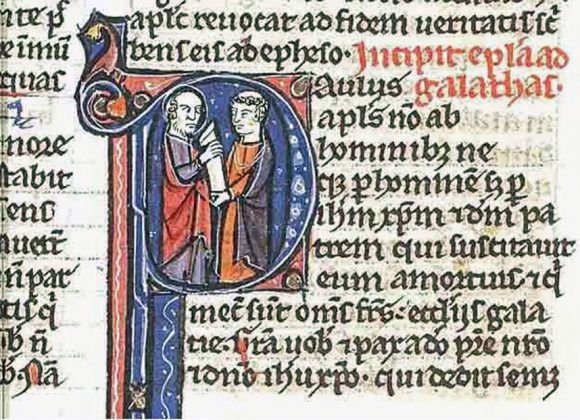 quas
nore
tabit
sens
apl'c reuocat ad fidem ueritatis sc̄
bens eis ab epheso. Incipit epl̄a ad
Paulus galathas.
apl's nō ab
hominibꝫ ne
qꝫ ꝑ hominē sꝫ ꝑ
ih̄m xp̄m ⁊ dm̄ pa
trem qui suscitauit
eum a mortuis ⁊ q̄
mec̄ sūt om̄s frs̄. ecclijs gala
tie. Gr̄a uob̄ ⁊ pax a do p̄re nr̄o
⁊ dn̄o ih̄u xp̄o. qui dedit semꝫ